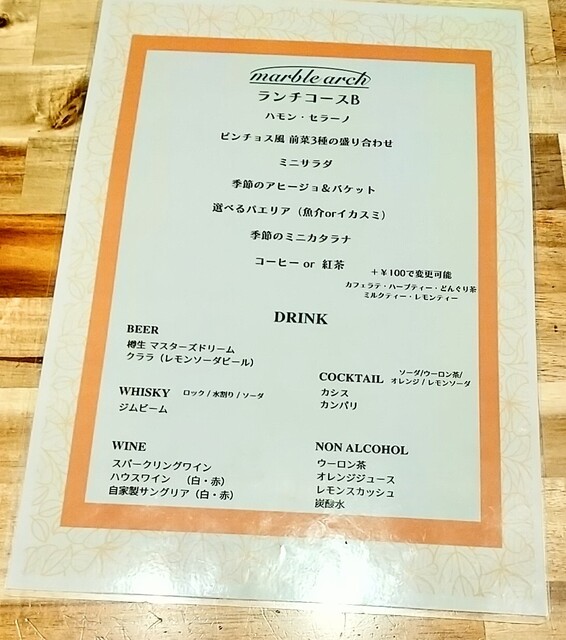 marble arch
ランチコースB
ハモン・セラーノ
ピンチョス風 前菜3種の盛り合わせ
ミニサラダ
季節のアヒージョ&バケット
選べるパエリア（魚介orイカスミ）
季節のミニカタラナ
コーヒー or 紅茶
＋￥100で変更可能
カフェラテ・ハーブティー・どんぐり茶
ミルクティー・レモンティー
DRINK
BEER
樽生 マスターズドリーム
クララ（レモンソーダビール）
WHISKY ロック / 水割り / ソーダ
ジムビーム
COCKTAIL ソーダ/ウーロン茶/
オレンジ / レモンソーダ
カシス
カンパリ
WINE
スパークリングワイン
ハウスワイン （白・赤）
自家製サングリア（白・赤）
NON ALCOHOL
ウーロン茶
オレンジジュース
レモンスカッシュ
炭酸水